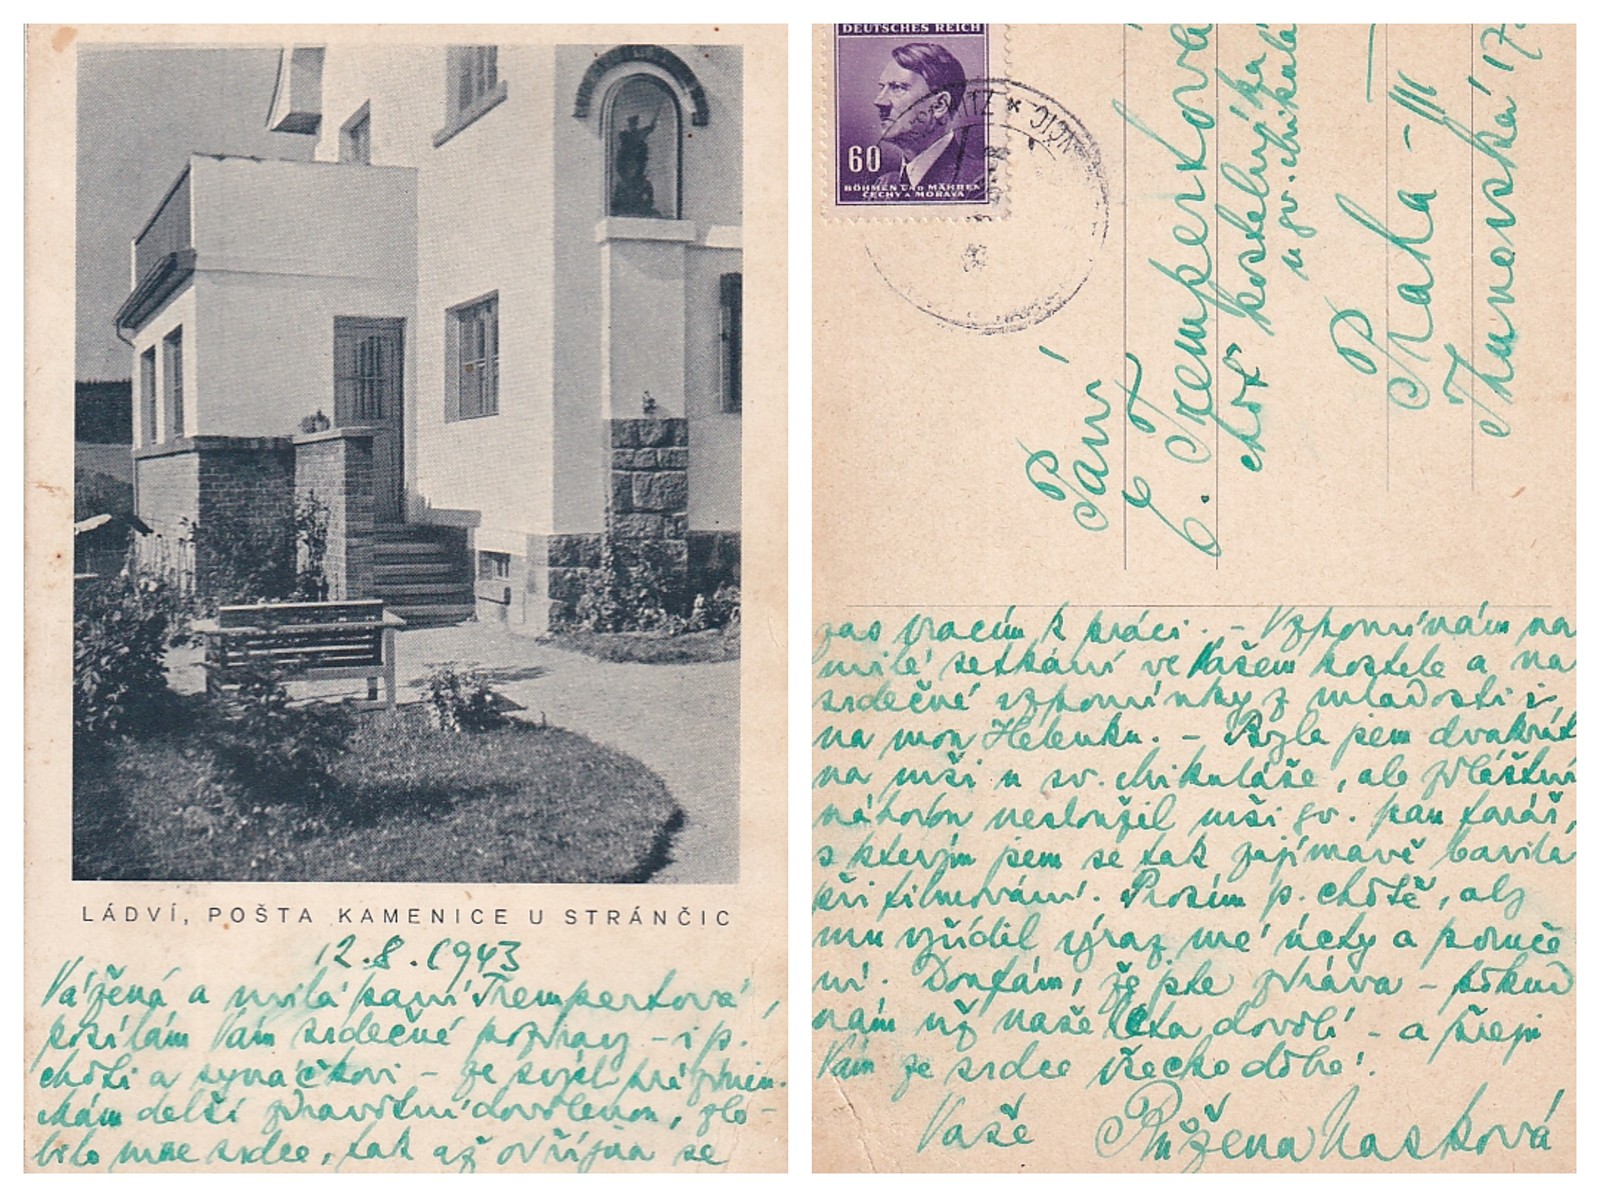 LÁDVÍ, POŠTA KAMENICE U STRÁNČIC
12.8.1943
Vážená a milá paní Trempertová,
posílám Vám srdečné pozdravy – i p.
choti a synáčkovi – ze svých prázdnin.
Mám delší zdravotní dovolenou, zlo-
bilo mne srdce, tak až v říjnu se
DEUTSCHES REICH
60
BÖHMEN UND MÄHREN
ČECHY A MORAVA
Paní
Trempertová
choť kostelníka
u sv. Mikuláše
Praha – III
Thunovská 17
zas vracím k práci. – Vzpomínám na
milé setkání ve Vašem kostele a na
srdečné vzpomínky z mladosti i
na mou Helenku. – Byla jsem dvakrát
na mši u sv. Mikuláše, ale zvláštní
náhodou nesloužil mši sv. pan farář,
s kterým jsem se tak zajímavě bavila
při filmování. Prosím p. chotě, aby
mu vyřídil výraz mé úcty a poruče
ní. Doufám, že jste zdráva – pokud
nám už naše léta dovolí – a přeji
Vám ze srdce všecko dobré!
Vaše Růžena Nasková